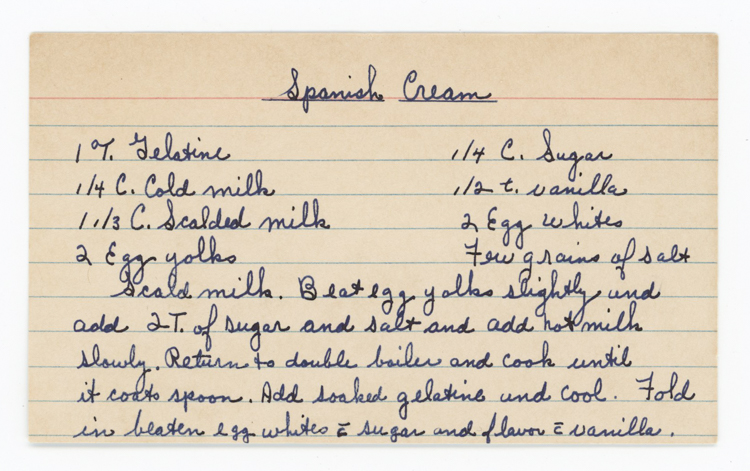 Spanish Cream
1 T. Gelatine 1/4 C. Sugar
1/4 C. Cold milk 1/2 t. vanilla
1 1/3 C. Scalded milk 2 Egg whites
2 Egg yolks Few grains of salt
Scald milk. Beat egg yolks slightly and
add 2T. of sugar and salt and add hot milk
slowly. Return to double boiler and cook until
it coats spoon. Add soaked gelatine and cool. Fold
in beaten egg whites c̄ sugar and flavor c̄ vanilla.